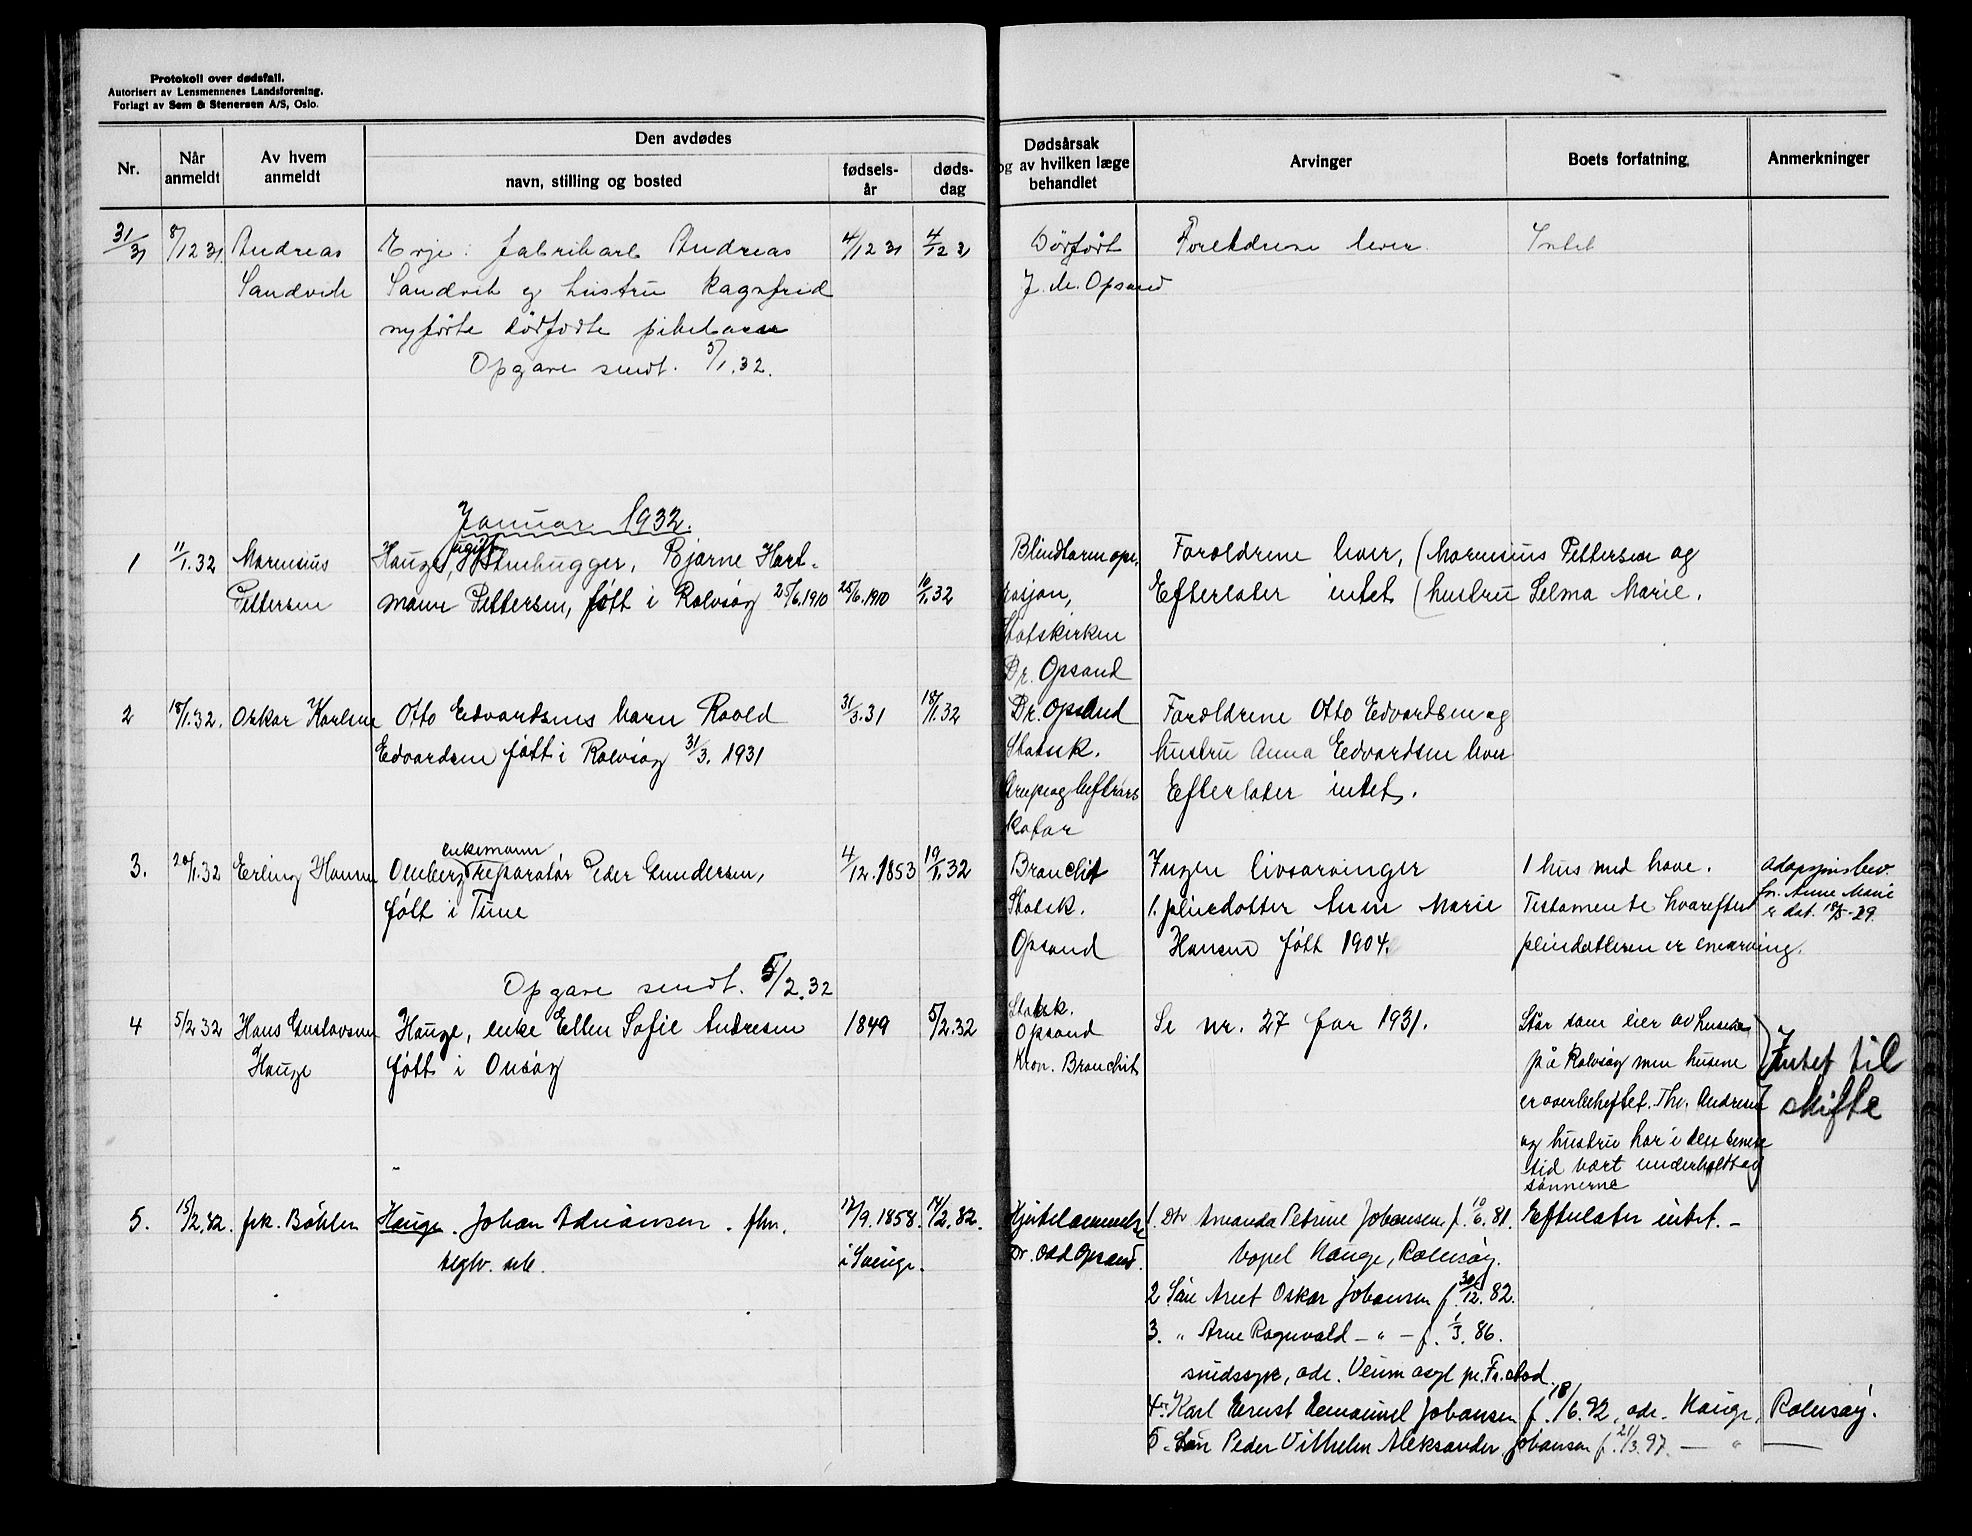 Protokoll over dødsfall.
Autorisert av Lensmennenes Landsforening.
Forlagt av Sem & Stenersen A/S, Oslo.
Nr.
Når anmeldt
Av hvem anmeldt
Den avdødes
navn, stilling og bosted
fødsels-år
døds-dag
Dødsårsak
og av hvilken læge
behandlet
Arvinger
Boets forfatning.
Anmerkninger
31/31 8/12 31 Andreas Evje: fabrikarb Andreas 4/12 31 4/12 31 Dødfødt Foreldrene lever Intet
Sandvik Sandvik og hustru Ragnfrid J. M. Opsand
nyfødte dødfødte pikebarn
Opgave sendt. 5/1.32.
Januar 1932.
ugift
1 11/1.32 Marensius Hauge, Stenhugger, Bjarne Hart- Blindtarmope- Foreldrene lever, (Marensius Pettersen og
Pettersen mann Pettersen, født i Rolvsøy 25/6.1910 25/6.1910 10/1.32 rasjon, Efterlater intet (hustru Selma Marie.
Statskirken
Dr. Opsand
2 18/1.32. Oskar Karlsen Otto Edvardsens barn Roald 31/3.31 18/1.32 Dr. Opsand Foreldrene Otto Edvardsen og
Edvardsen født i Rolvsøy 31/3. 1931 Statsk. hustru Anna Edvardsen lever
Efterlater intet.
katar
enkemann
3. 20/1.32 Erling Hansen Omberg reparatør Peder Gundersen, 4/12.1853 19/1.32 Bronchit Ingen livsarvinger 1 hus med have. adopsjonsbev.
født i Tune Statsk. 1. pleiedatter Anne Marie Testamente hvorefter for Anne Marie
er dat. 18/5-29.
Opsand Hansen født 1904. pleiedatteren er enearving.
Opgave sendt. 5/2.32
4 5/2 32 Hans Gustavsen Hauge, enke Ellen Sofie Andresen 1849 5/2.32 Statsk. Se nr. 27 for 1931. Står som eier av husene
Opsand
Hauge født i Onsøy Kron. Bronchit på Rolvsøy men husene Intet til
er overbeheftet. Th. Andresen skifte
og hustru har i den senere
tid vært underholdt av
sønnerne
5. 15/2.32. frk. Böhlen Hauge. Johan Adriansen. fhv. 12/9.1858. 14/2.32. Hjertelammelse 1. Dtr Amanda Petrine Johansen f. 10/6.81. Efterlater intet.-
i Sverige. Dr. Odd Opsand. Hauge, Rolvsøy.
2 Søn Arnt Oskar Johansen f. 30/12.82.
3. " Arne Ragnvald - " - f. 1/3.86.
sindssyk, adr. Veum asyl pr. Fr.stad.
4. Karl Ernst Emanuel Johansen f. 18/6.92, adr. Hauge, Rolvsøy.
5. Søn Peder Vilhelm Aleksander Johansen f. 21/3.97. — " —